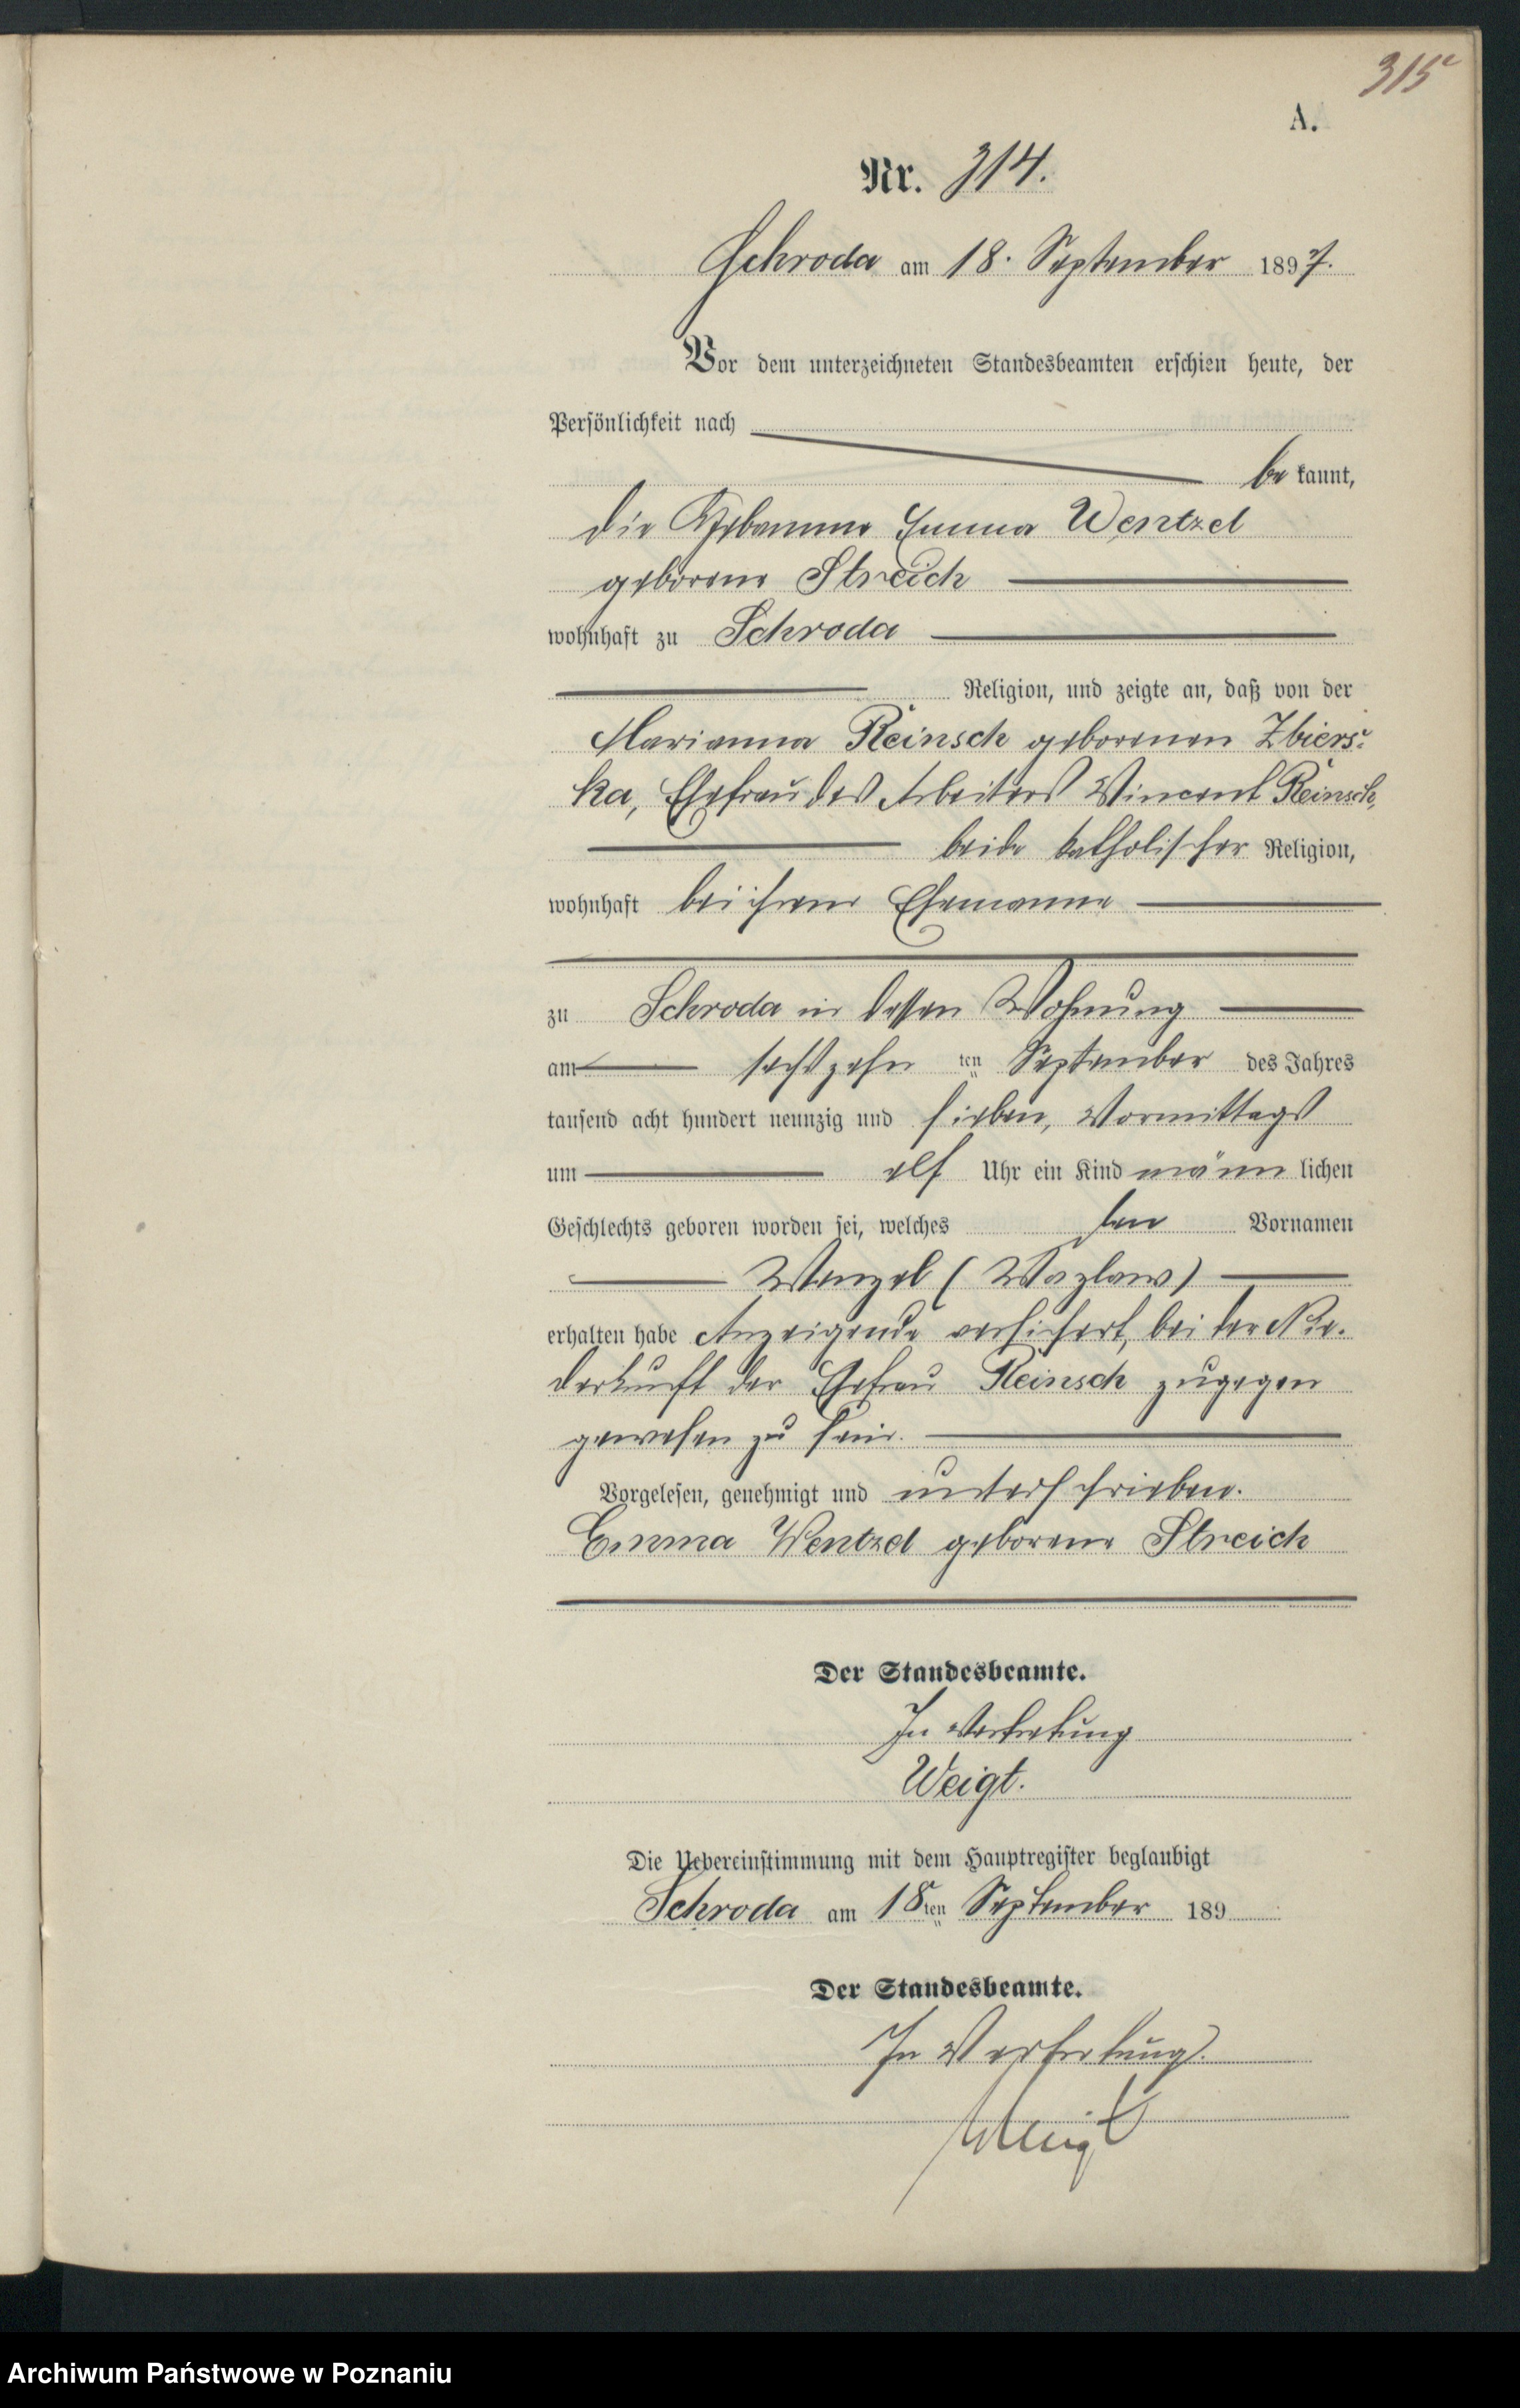 315
A.
Nr. 314.
Schroda am 18. September 1897.
Vor dem unterzeichneten Standesbeamten erschien heute, der
Persönlichkeit nach
be kannt,
die Hebamme Emma Wentzel
geborene Streich
wohnhaft zu Schroda
Religion, und zeigte an, daß von der
Marianna Reinsch geborenen Zbiers-
ka, Ehefrau des Arbeiters Vincent Reinsch,
beide katholischer Religion,
wohnhaft bei ihrem Ehemanne
zu Schroda in dessen Wohnung
am sechszehn ten September des Jahres
tausend acht hundert neunzig und sieben, Vormittags
um elf Uhr ein Kind männ lichen
Geschlechts geboren worden sei, welches den Vornamen
Wenzel (Wazlaw)
erhalten habe Anzeigende versichert, bei der Nie-
derkunft der Ehefrau Reinsch zugegen
gewesen zu sein.
Vorgelesen, genehmigt und unterschrieben.
Emma Wentzel geborene Streich
Der Standesbeamte.
In Vertretung
Weigt.
Die Uebereinstimmung mit dem Hauptregister beglaubigt
Schroda am 18ten September 189
Der Standesbeamte.
In Vertretung.
Weigt
Archiwum Państwowe w Poznaniu